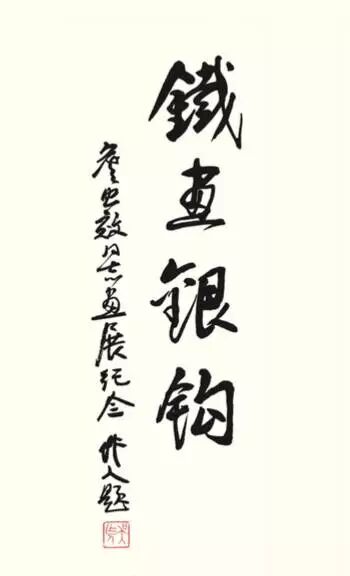 鐵畫銀鈎
詹忠效同志畫展紀念 作人題